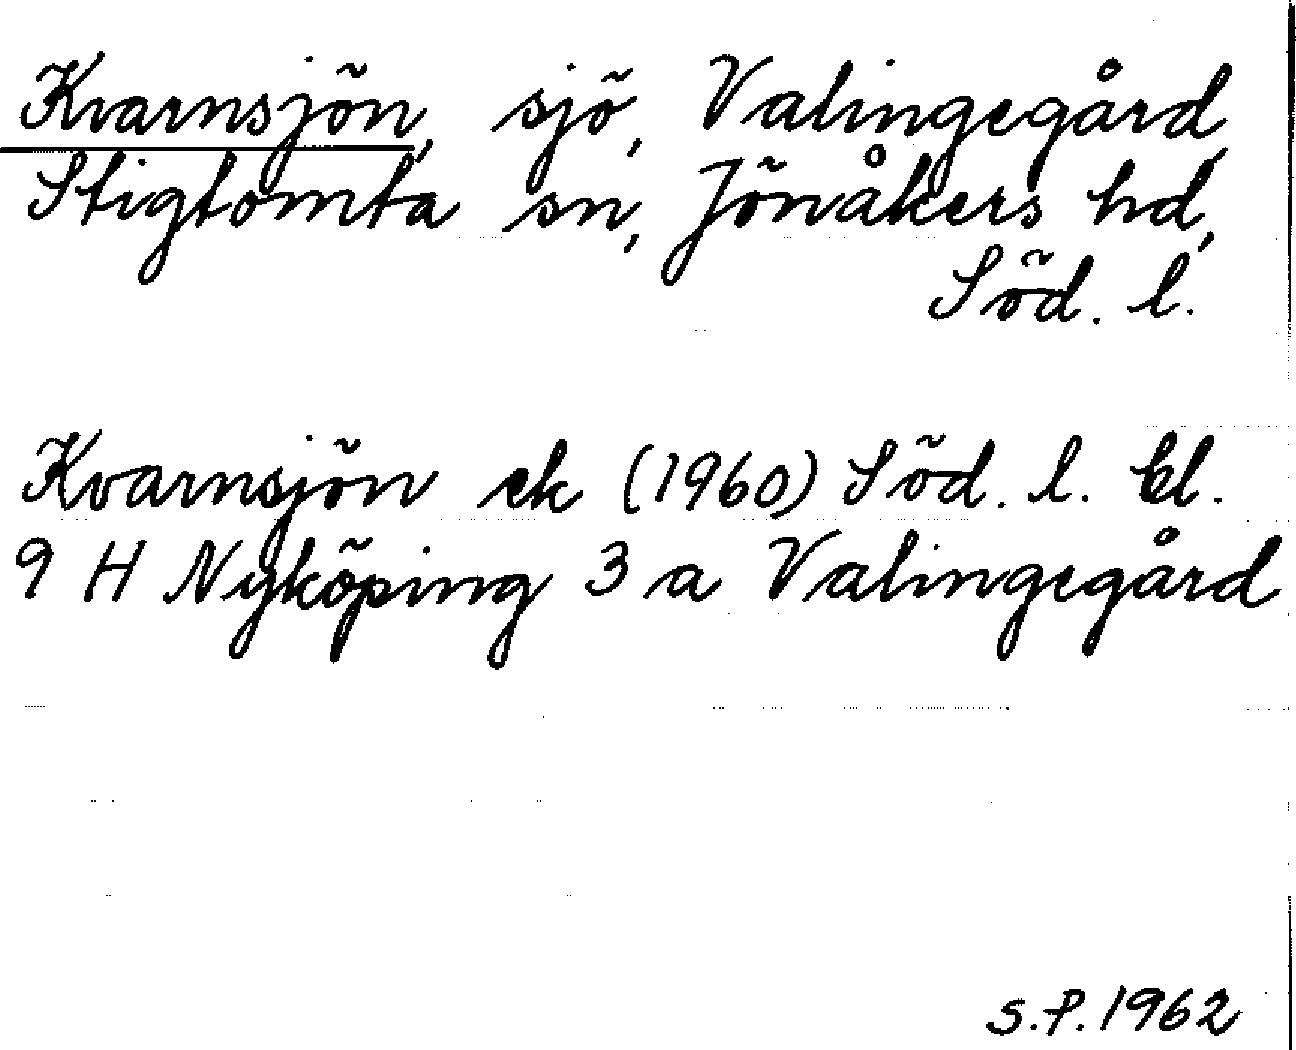 Kvarnsjön, sjö, Valingegård,
Stigtomta sn, Jönåkers hd,
Söd. l.
Kvarnsjön ek (1960) Söd. l. bl.
9 H Nyköping 3 a Valingegård
S.P. 1962